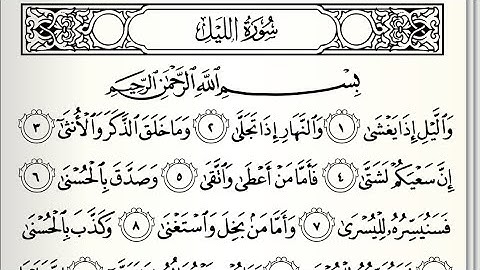 سُورَةُ اللَّيْلِ
بِسْمِ اللَّهِ الرَّحْمَٰنِ الرَّحِيمِ
وَاللَّيْلِ إِذَا يَغْشَىٰ ١ وَالنَّهَارِ إِذَا تَجَلَّىٰ ٢ وَمَا خَلَقَ الذَّكَرَ وَالْأُنثَىٰ ٣
إِنَّ سَعْيَكُمْ لَشَتَّىٰ ٤ فَأَمَّا مَنْ أَعْطَىٰ وَاتَّقَىٰ ٥ وَصَدَّقَ بِالْحُسْنَىٰ ٦
فَسَنُيَسِّرُهُ لِلْيُسْرَىٰ ٧ وَأَمَّا مَنْ بَخِلَ وَاسْتَغْنَىٰ ٨ وَكَذَّبَ بِالْحُسْنَىٰ